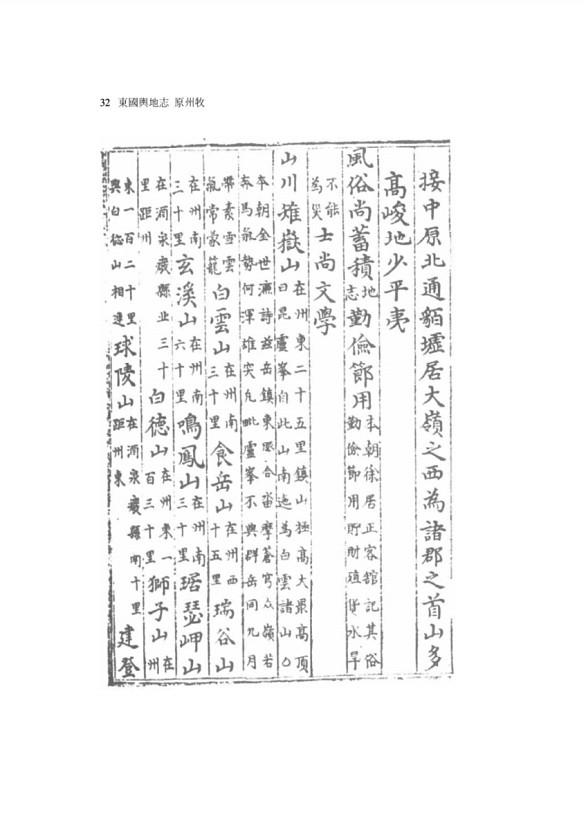 32 東國輿地志 原州牧
接中原北通貊墟居大嶺之西為諸郡之首山多
高峻地少平夷
風俗尚蓄積地志勤儉節用本朝徐居正客舘記其俗勤儉節用貯財殖貨水旱
不能為灾士尚文學
山川雉嶽山在州東二十五里鎮山極高大最高頂曰昆盧峯自此山南迤為白雲諸山○
本朝金世濂詩玆岳鎮東合畓摩蒼穹众嶺若奔馬氣勢何渾雄突兀毗盧峯不與群岳同九月
帶素雪雲氣常蒙籠白雲山在州南三十里食岳山在州西十五里瑞谷山
在州南三十里玄溪山在州南六十里鳴鳳山在州南三十里琚瑟岬山
在酒泉廢縣北三十里距州白德山在州東一百三十里獅子山在州
東一百二十里與白德山相連球陵山在酒泉廢縣南十里距州東建登